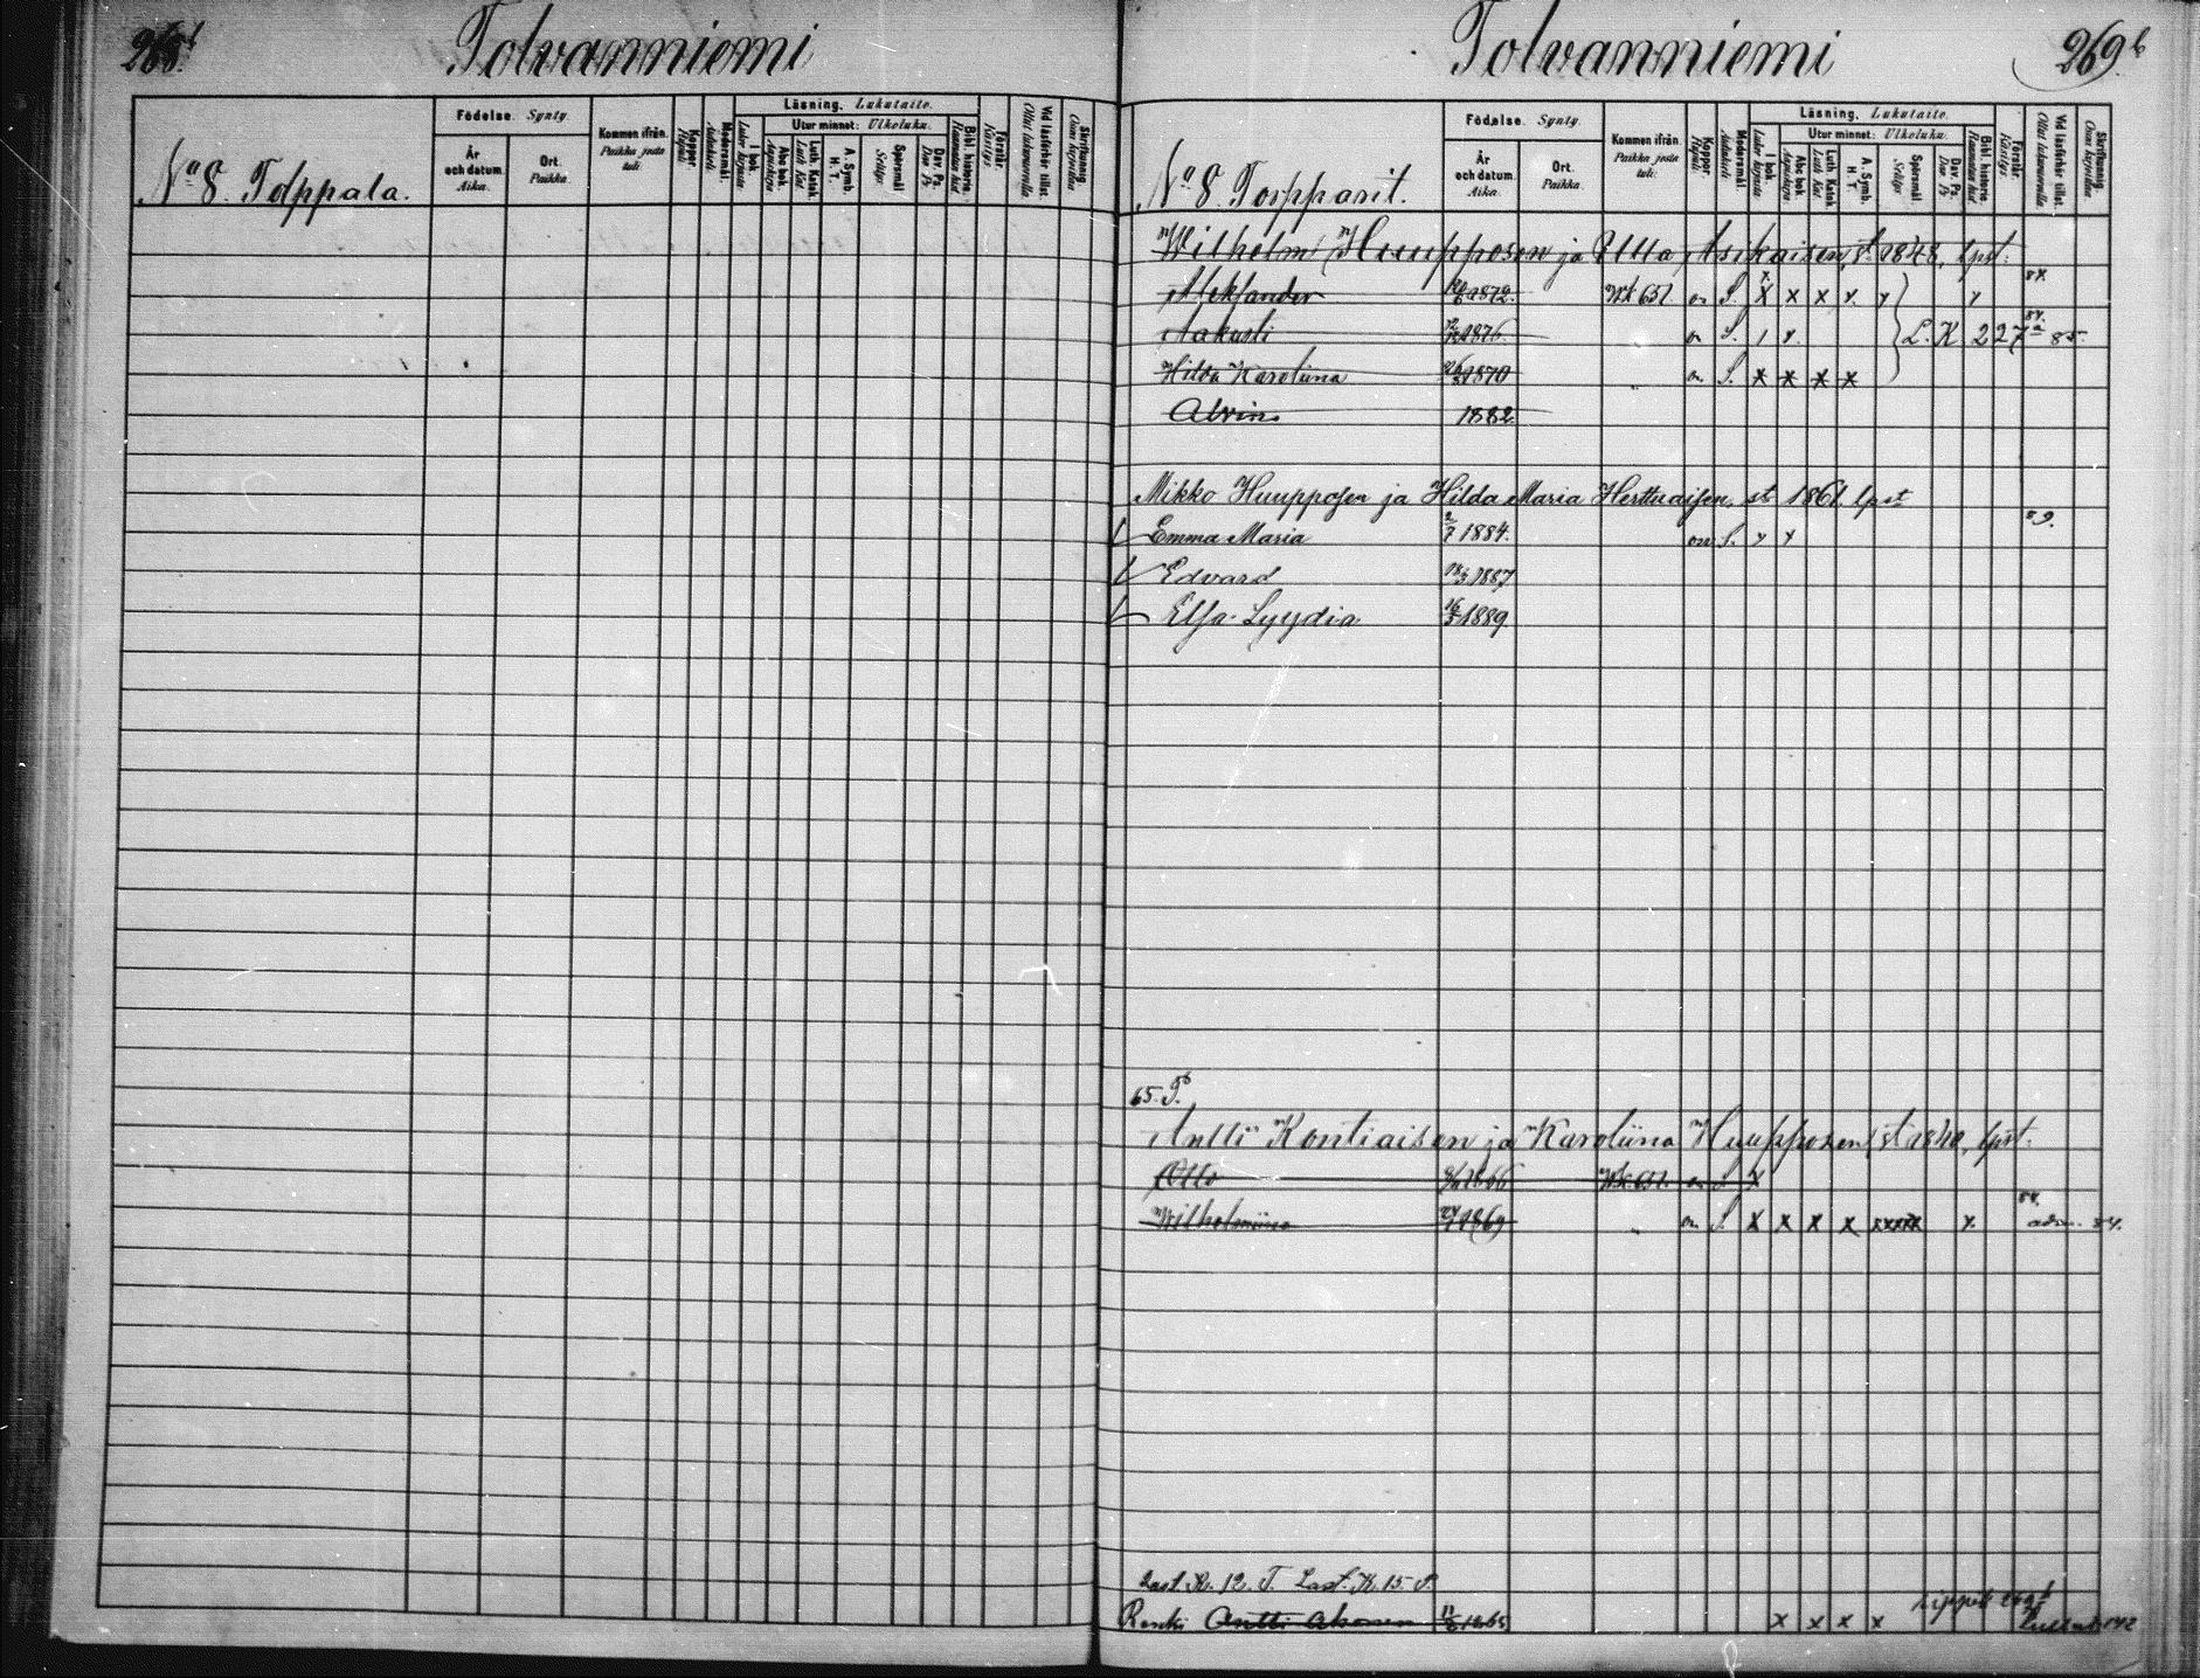 268b
Tolvanniemi
No 8. Torppala.
Födelse. Synty.
År och datum. Aika.
Ort. Paikka.
Kommen ifrån. Paikka josta tuli.
Koppor. Rupuli
Modersmål. Äidinkieli
Läsning. Lukutaito.
I bok. Luku kirjasta
Utur minnet: Ulkoluku.
Abc bok. Aapiskirja
Luth. Katek. Luth. Kat.
A. Symb. H. T.
Spörsmål Selitys
Dav. Ps. Dav. Ps.
Bibl. historia. Raamatun hist.
Förstår. Käsitys.
Vid läsförhör tillst. Ollut lukuvuorolla
Skrifkunnig. Osaa kirjoittaa
Tolvanniemi
269b
No 8. Torpparit.
Födelse. Synty.
År och datum. Aika.
Ort. Paikka.
Kommen ifrån. Paikka josta tuli.
Koppor. Rupuli
Modersmål. Äidinkieli
Läsning. Lukutaito.
I bok. Luku kirjasta
Utur minnet: Ulkoluku.
Abc bok. Aapiskirja
Luth. Katek. Luth. Kat.
A. Symb. H. T.
Spörsmål Selitys
Dav. Ps. Dav. Ps.
Bibl. historia. Raamatun hist.
Förstår. Käsitys.
Vid läsförhör tillst. Ollut lukuvuorolla
Skrifkunnig. Osaa kirjoittaa
Wilhelm Huupposen ja Ulla Asikaisen, st 1848, lpst:
Aleksander 1872. Wk 651 on S. x x x x y y 84.
Aakusti 1876 on S. L. K 227a 85 84.
Hilda Karoliina 1870 " on S. x x x x
Alvina 1882.
Mikko Huupposen ja Hilda Maria Herttuaisen, st 1861 lpst
Emma Maria 2/7 1884. on S. y y 89.
Edvard 18/3 1887
Elsa Lyydia 16/3 1889
65. P.
Antti Kontiaisen ja Karoliina Huupposen st 1840, lpst.
Otto 1866 Wk 651 on S x
Wilhelmiina 1869 " on S x x x x xxxxx y. 84. adm. 84.
Last. R. 12. T. Last. K. 15 P.
Renki Antti Ahonen 1865 x x x x